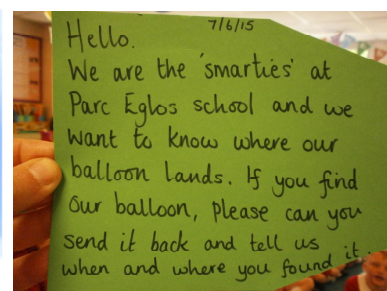 7/6/15
Hello.
We are the 'smarties' at
Parc Eglos school and we
want to know where our
balloon lands. If you find
our balloon, please can you
send it back and tell us
when and where you found it.